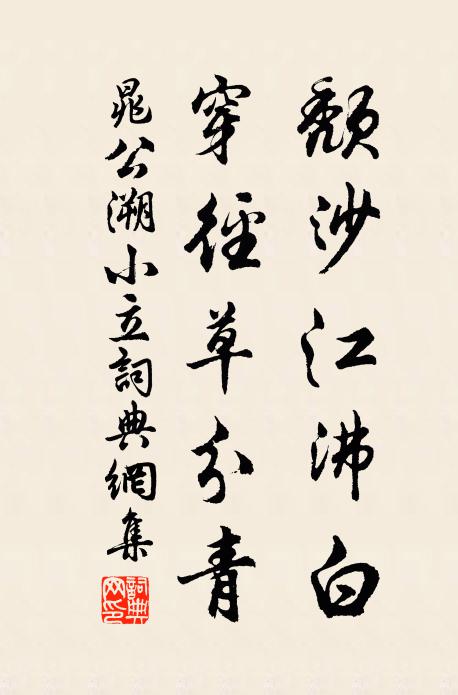 頹沙江沸白
穿徑草分青
晁公溯小立詞典網集
詞典
网印